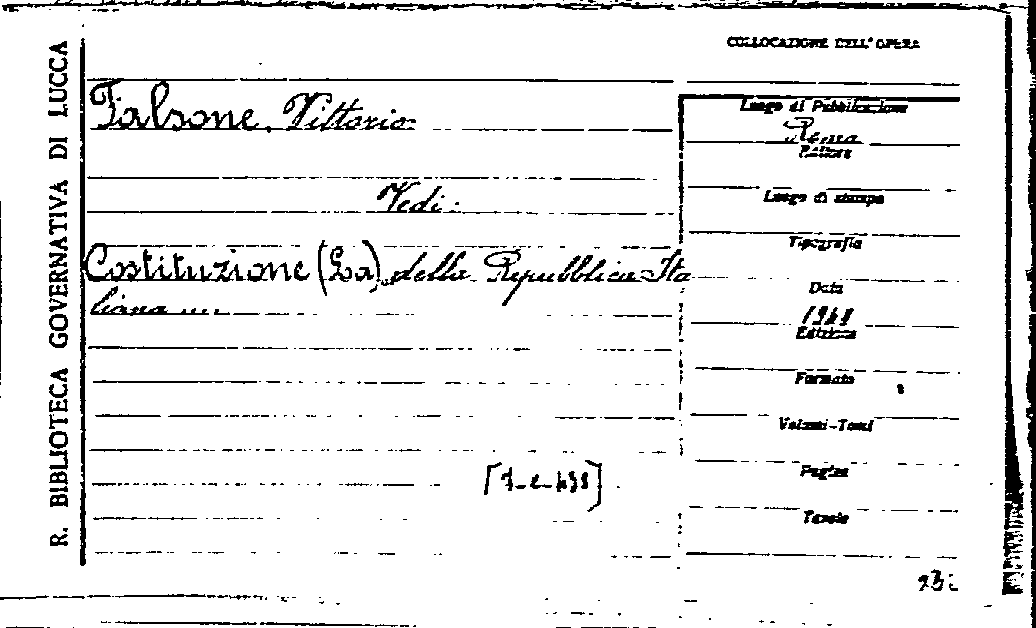 R. BIBLIOTECA GOVERNATIVA DI LUCCA
COLLOCAZIONE DELL'OPERA
Falsone, Vittorio
Vedi:
Costituzione (La) della Repubblica Ita
liana ....
Luogo di Pubblicazione
Roma
Editore
Luogo di stampa
Tipografia
Data
1948
Edizione
Formato
Volumi-Tomi
Pagine
Tavole